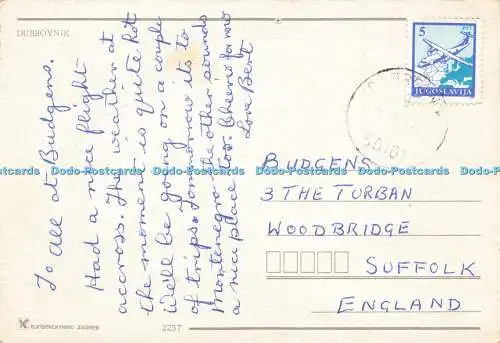 DUBROVNIK
To All at Budgens.
Had a nice flight
accross. The weather at
the moment is quite hot
We'll be going on a couple
of trips. Tomorrow its to
Montenegro. the other sounds
a nice place too. Cheerio for now
Love Bert
5
JUGOSLAVIJA
BUDGENS
3 THE TURBAN
WOODBRIDGE
SUFFOLK
ENGLAND
2257
Dodo-Postcards Dodo-Postcards Dodo-Postcards Dodo-Postcards Dodo-Postcards Dodo-Postcards